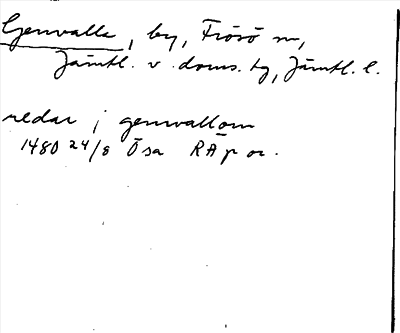 Genvalla, by, Frösö sn,
Jämtl. v. doms. tg, Jämtl. l.
nedar i genvallom
1480 24/8 Ösa RAp or.